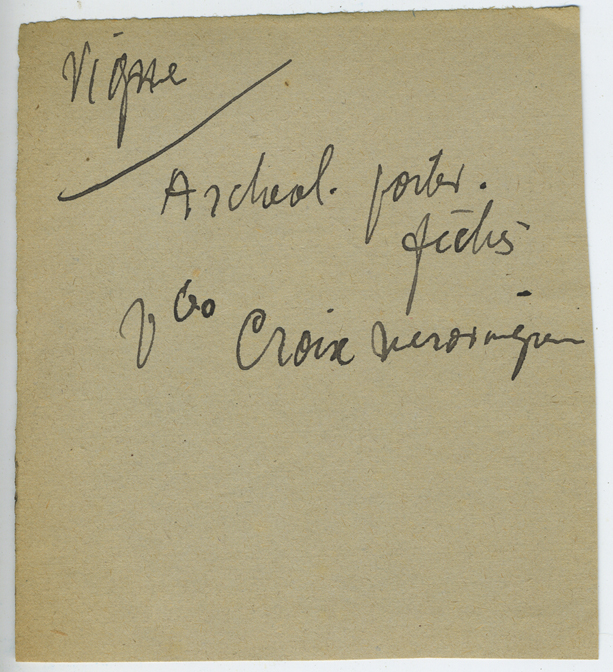 Vigne
Archeol. poitev.
fiches
Vbo Croix merovingien